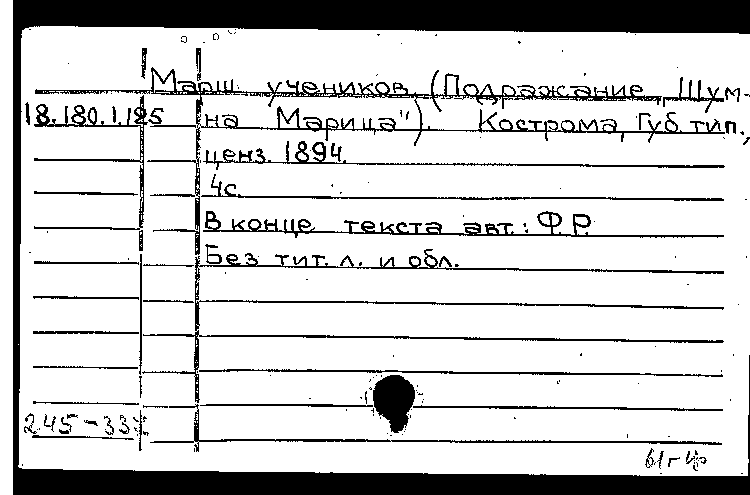 Марш учеников. (Подражание „Шум-
18.180.1.125 на Марица"). Кострома, Губ. тип.,
ценз. 1894.
4с.
В конце текста авт.: Ф.Р.
Без тит. л. и обл.
245-33